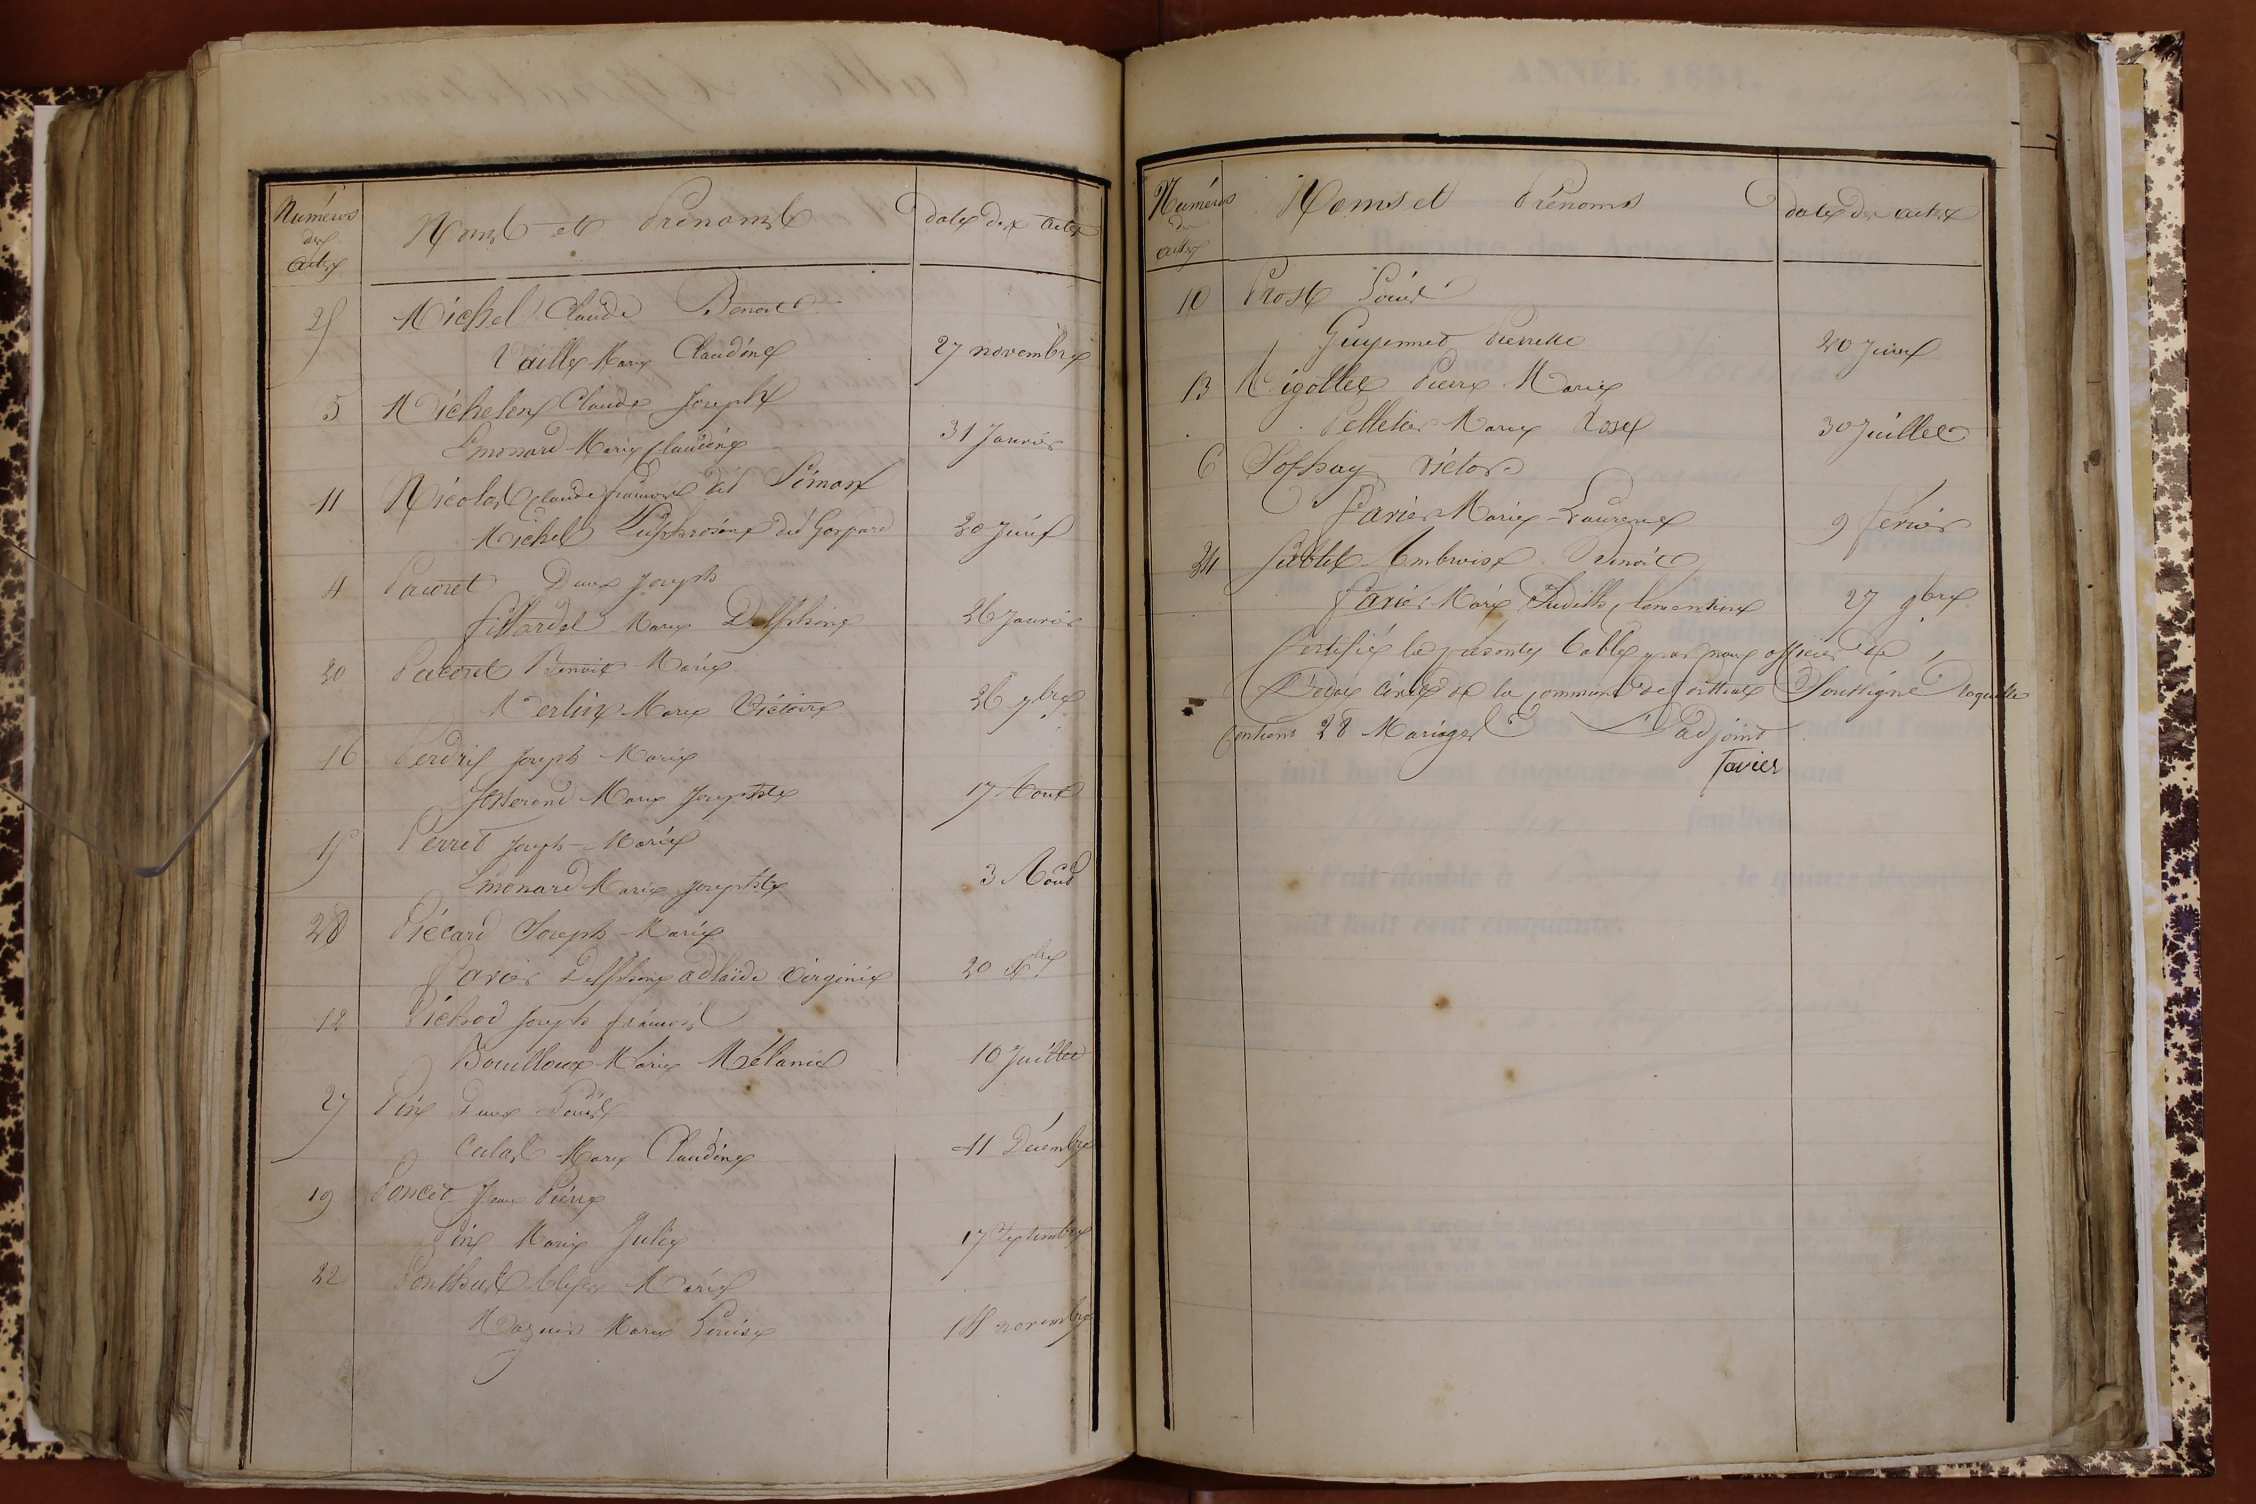 Numéros
des
actes
Noms et Prénoms
dates des actes
25
Michel Claude Benoit
Vaille Marie Claudine
27 novembre
5
Michelon Claude Joseph
Emonard Marie Claudine
31 Janvier
11
Nicolas Claude françois dit Simon
Michel Euphrosine dit Gaspard
20 Juin
4
Pacoret Joseph
Fillardet Marie Delphine
26 Janvier
20
Pacoret Benoit Marie
Merlin Marie Victoire
26 9bre
16
Perdrix Joseph Marie
Josserand Marie Josephte
17 Aout
15
Perret Joseph Marie
Emonard Marie Josephte
3 Aout
28
Piccard Joseph Marie
Favier Delphine adlaïde Virginie
20 Xbre
12
Pichod Joseph françois
Bouilloux Marie Mélanie
10 Juillet
27
Pin Louis
Calas Marie Claudine
11 Décembre
19
Poncet Jean Pierre
Pin Marie Julie
17 Septembre
22
Ponthus Marie
Marie Louise
18 novembre
Numéros
des
actes
Noms et Prénoms
dates des actes
10
Prost Louis
Guyennet Pierrette
20 Juin
13
Rigollet Pierre Marie
Pelletier Marie Rose
30 Juillet
6
Sothay Victor
Favier Marie Laurence
9 février
24
Ambroise Benoit
Favier Marie Judith Clementine
27 9bre
Certifié la présente table par nous officier de
L'état civil de la commune de Soussigné laquelle
Contient 28 Mariages L'adjoint
Favier
ANNÉE 1851.
Registre des Actes de Mariage